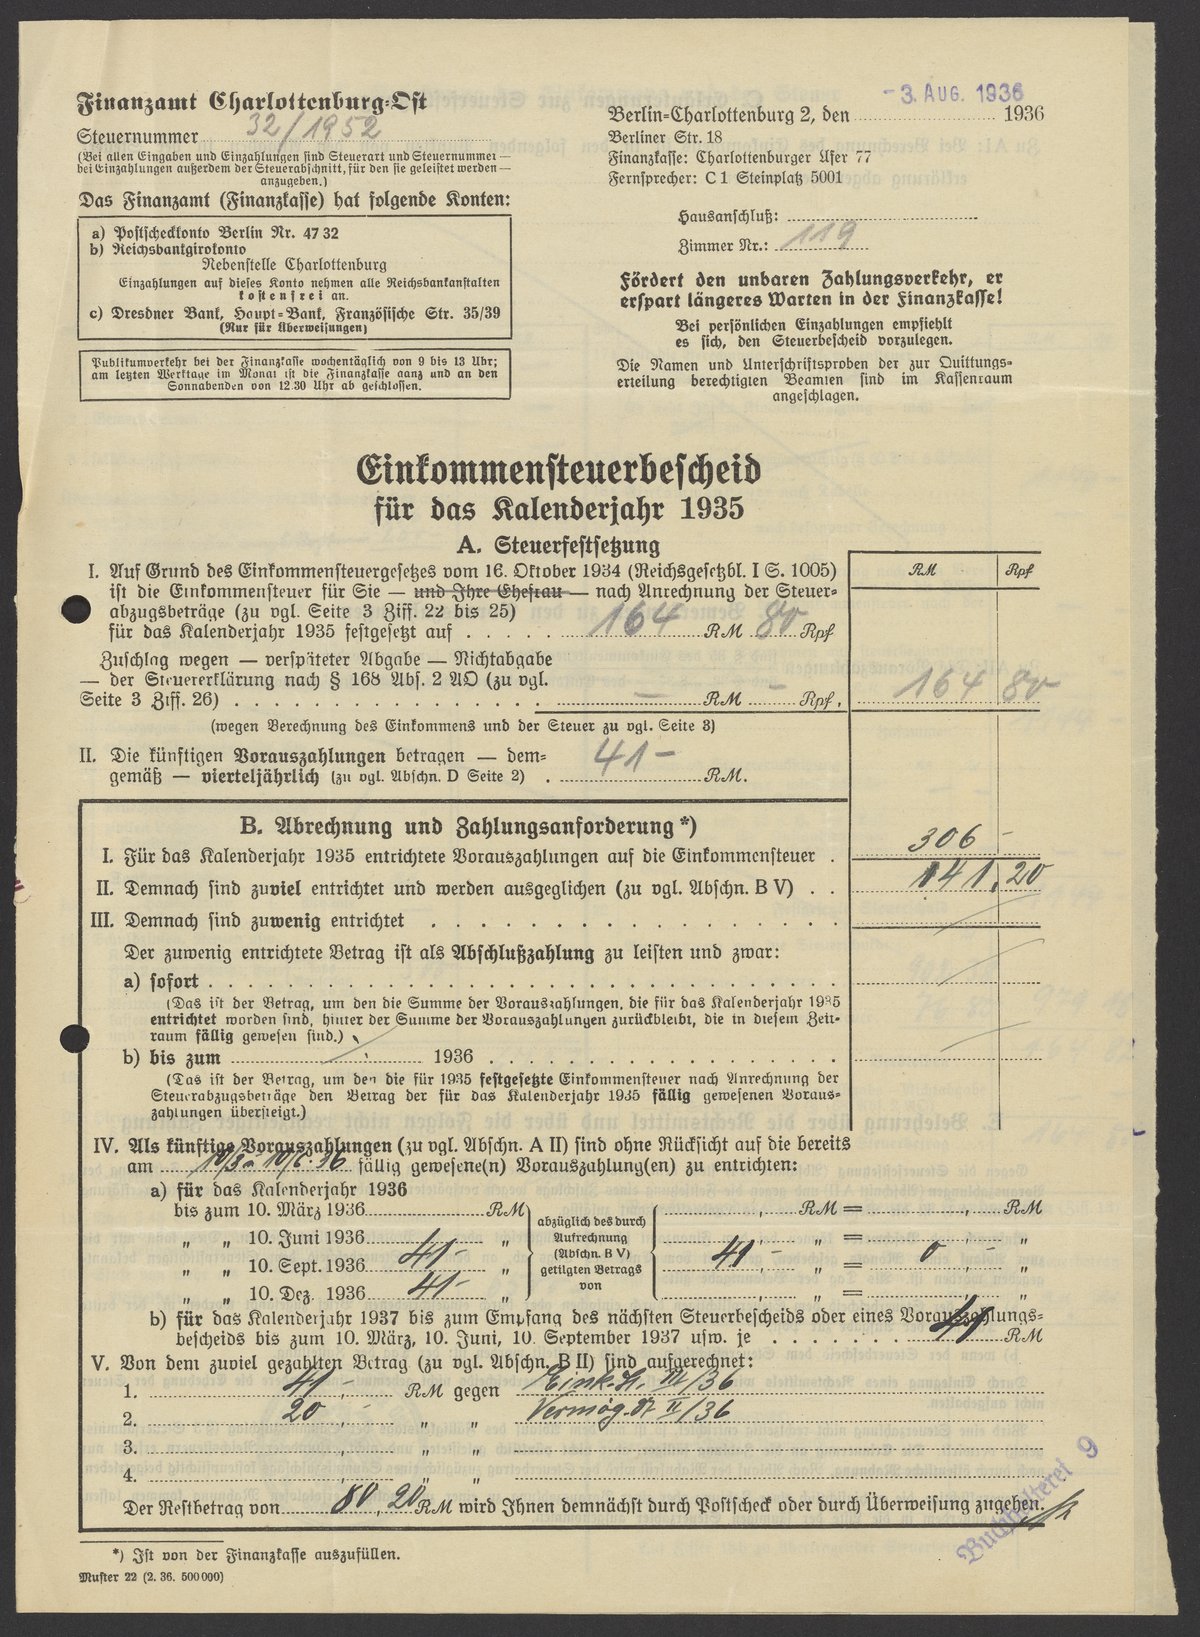 Finanzamt Charlottenburg-Ost
Steuernummer 32/1952
(Bei allen Eingaben und Einzahlungen sind Steuerart und Steuernummer —
bei Einzahlungen außerdem der Steuerabschnitt, für den sie geleistet werden —
anzugeben.)
Das Finanzamt (Finanzkasse) hat folgende Konten:
a) Postscheckkonto Berlin Nr. 47 32
b) Reichsbankgirokonto
Nebenstelle Charlottenburg
Einzahlungen auf dieses Konto nehmen alle Reichsbankanstalten
kostenfrei an.
c) Dresdner Bank, Haupt-Bank, Französische Str. 35/39
(Nur für Überweisungen)
Publikumverkehr bei der Finanzkasse wochentäglich von 9 bis 13 Uhr;
am letzten Werktage im Monat ist die Finanzkasse ganz und an den
Sonnabenden von 12.30 Uhr ab geschlossen.
- 3. AUG. 1936
Berlin-Charlottenburg 2, den 1936
Berliner Str. 18
Finanzkasse: Charlottenburger Ufer 77
Fernsprecher: C 1 Steinplatz 5001
Hausanschluß:
Zimmer Nr.: 119
Fördert den unbaren Zahlungsverkehr, er
erspart längeres Warten in der Finanzkasse!
Bei persönlichen Einzahlungen empfiehlt
es sich, den Steuerbescheid vorzulegen.
Die Namen und Unterschriftsproben der zur Quittungs-
erteilung berechtigten Beamten sind im Kassenraum
angeschlagen.
Einkommensteuerbescheid
für das Kalenderjahr 1935
A. Steuerfestsetzung
RM Rpf
I. Auf Grund des Einkommensteuergesetzes vom 16. Oktober 1934 (Reichsgesetzbl. I S. 1005)
ist die Einkommensteuer für Sie — und Ihre Ehefrau — nach Anrechnung der Steuer-
abzugsbeträge (zu vgl. Seite 3 Ziff. 22 bis 25)
für das Kalenderjahr 1935 festgesetzt auf . . . . . 164 RM 80 Rpf
Zuschlag wegen — verspäteter Abgabe — Nichtabgabe
— der Steuererklärung nach § 168 Abs. 2 AO (zu vgl.
Seite 3 Ziff. 26) . . . . . — RM — Rpf. 164 80
(wegen Berechnung des Einkommens und der Steuer zu vgl. Seite 3)
II. Die künftigen Vorauszahlungen betragen — dem-
gemäß — vierteljährlich (zu vgl. Abschn. D Seite 2) . 41 – RM.
B. Abrechnung und Zahlungsanforderung *)
I. Für das Kalenderjahr 1935 entrichtete Vorauszahlungen auf die Einkommensteuer . 306 –
II. Demnach sind zuviel entrichtet und werden ausgeglichen (zu vgl. Abschn. B V) . . 141, 20
III. Demnach sind zuwenig entrichtet . . . . .
Der zuwenig entrichtete Betrag ist als Abschlußzahlung zu leisten und zwar:
a) sofort . . . . .
(Das ist der Betrag, um den die Summe der Vorauszahlungen, die für das Kalenderjahr 1935
entrichtet worden sind, hinter der Summe der Vorauszahlungen zurückbleibt, die in diesem Zeit-
raum fällig gewesen sind.)
b) bis zum 1936 . . . . .
(Das ist der Betrag, um den die für 1935 festgesetzte Einkommensteuer nach Anrechnung der
Steuerabzugsbeträge den Betrag der für das Kalenderjahr 1935 fällig gewesenen Voraus-
zahlungen übersteigt.)
IV. Als künftige Vorauszahlungen (zu vgl. Abschn. A II) sind ohne Rücksicht auf die bereits
am 10/3. 10/6. 36 fällig gewesene(n) Vorauszahlung(en) zu entrichten:
a) für das Kalenderjahr 1936
bis zum 10. März 1936 RM abzüglich des durch Aufrechnung (Abschn. B V) getilgten Betrags von , RM = , RM
„ „ 10. Juni 1936 „ , „ = , „
„ „ 10. Sept. 1936 41 – „ 41, – „ = 0, – „
„ „ 10. Dez. 1936 41 – „ , „ = , „
b) für das Kalenderjahr 1937 bis zum Empfang des nächsten Steuerbescheids oder eines Vorauszahlungs-
bescheids bis zum 10. März, 10. Juni, 10. September 1937 usw. je . . . . . 41 RM
V. Von dem zuviel gezahlten Betrag (zu vgl. Abschn. B II) sind aufgerechnet:
1. 41, – RM gegen Eink. St. III/36
2. 20, – „ „ Vermög. St II/36
3. , „ „
4. , „ „
Der Restbetrag von 80, 20 RM wird Ihnen demnächst durch Postscheck oder durch Überweisung zugehen.
Buchhalterei 9
*) Ist von der Finanzkasse auszufüllen.
Muster 22 (2. 36. 500 000)